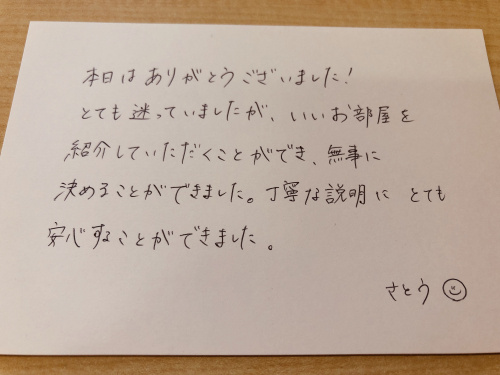 本日はありがとうございました!
とても迷っていましたが、いいお部屋を
紹介していただくことができ、無事に
決めることができました。丁寧な説明に とても
安心することができました。
さとう